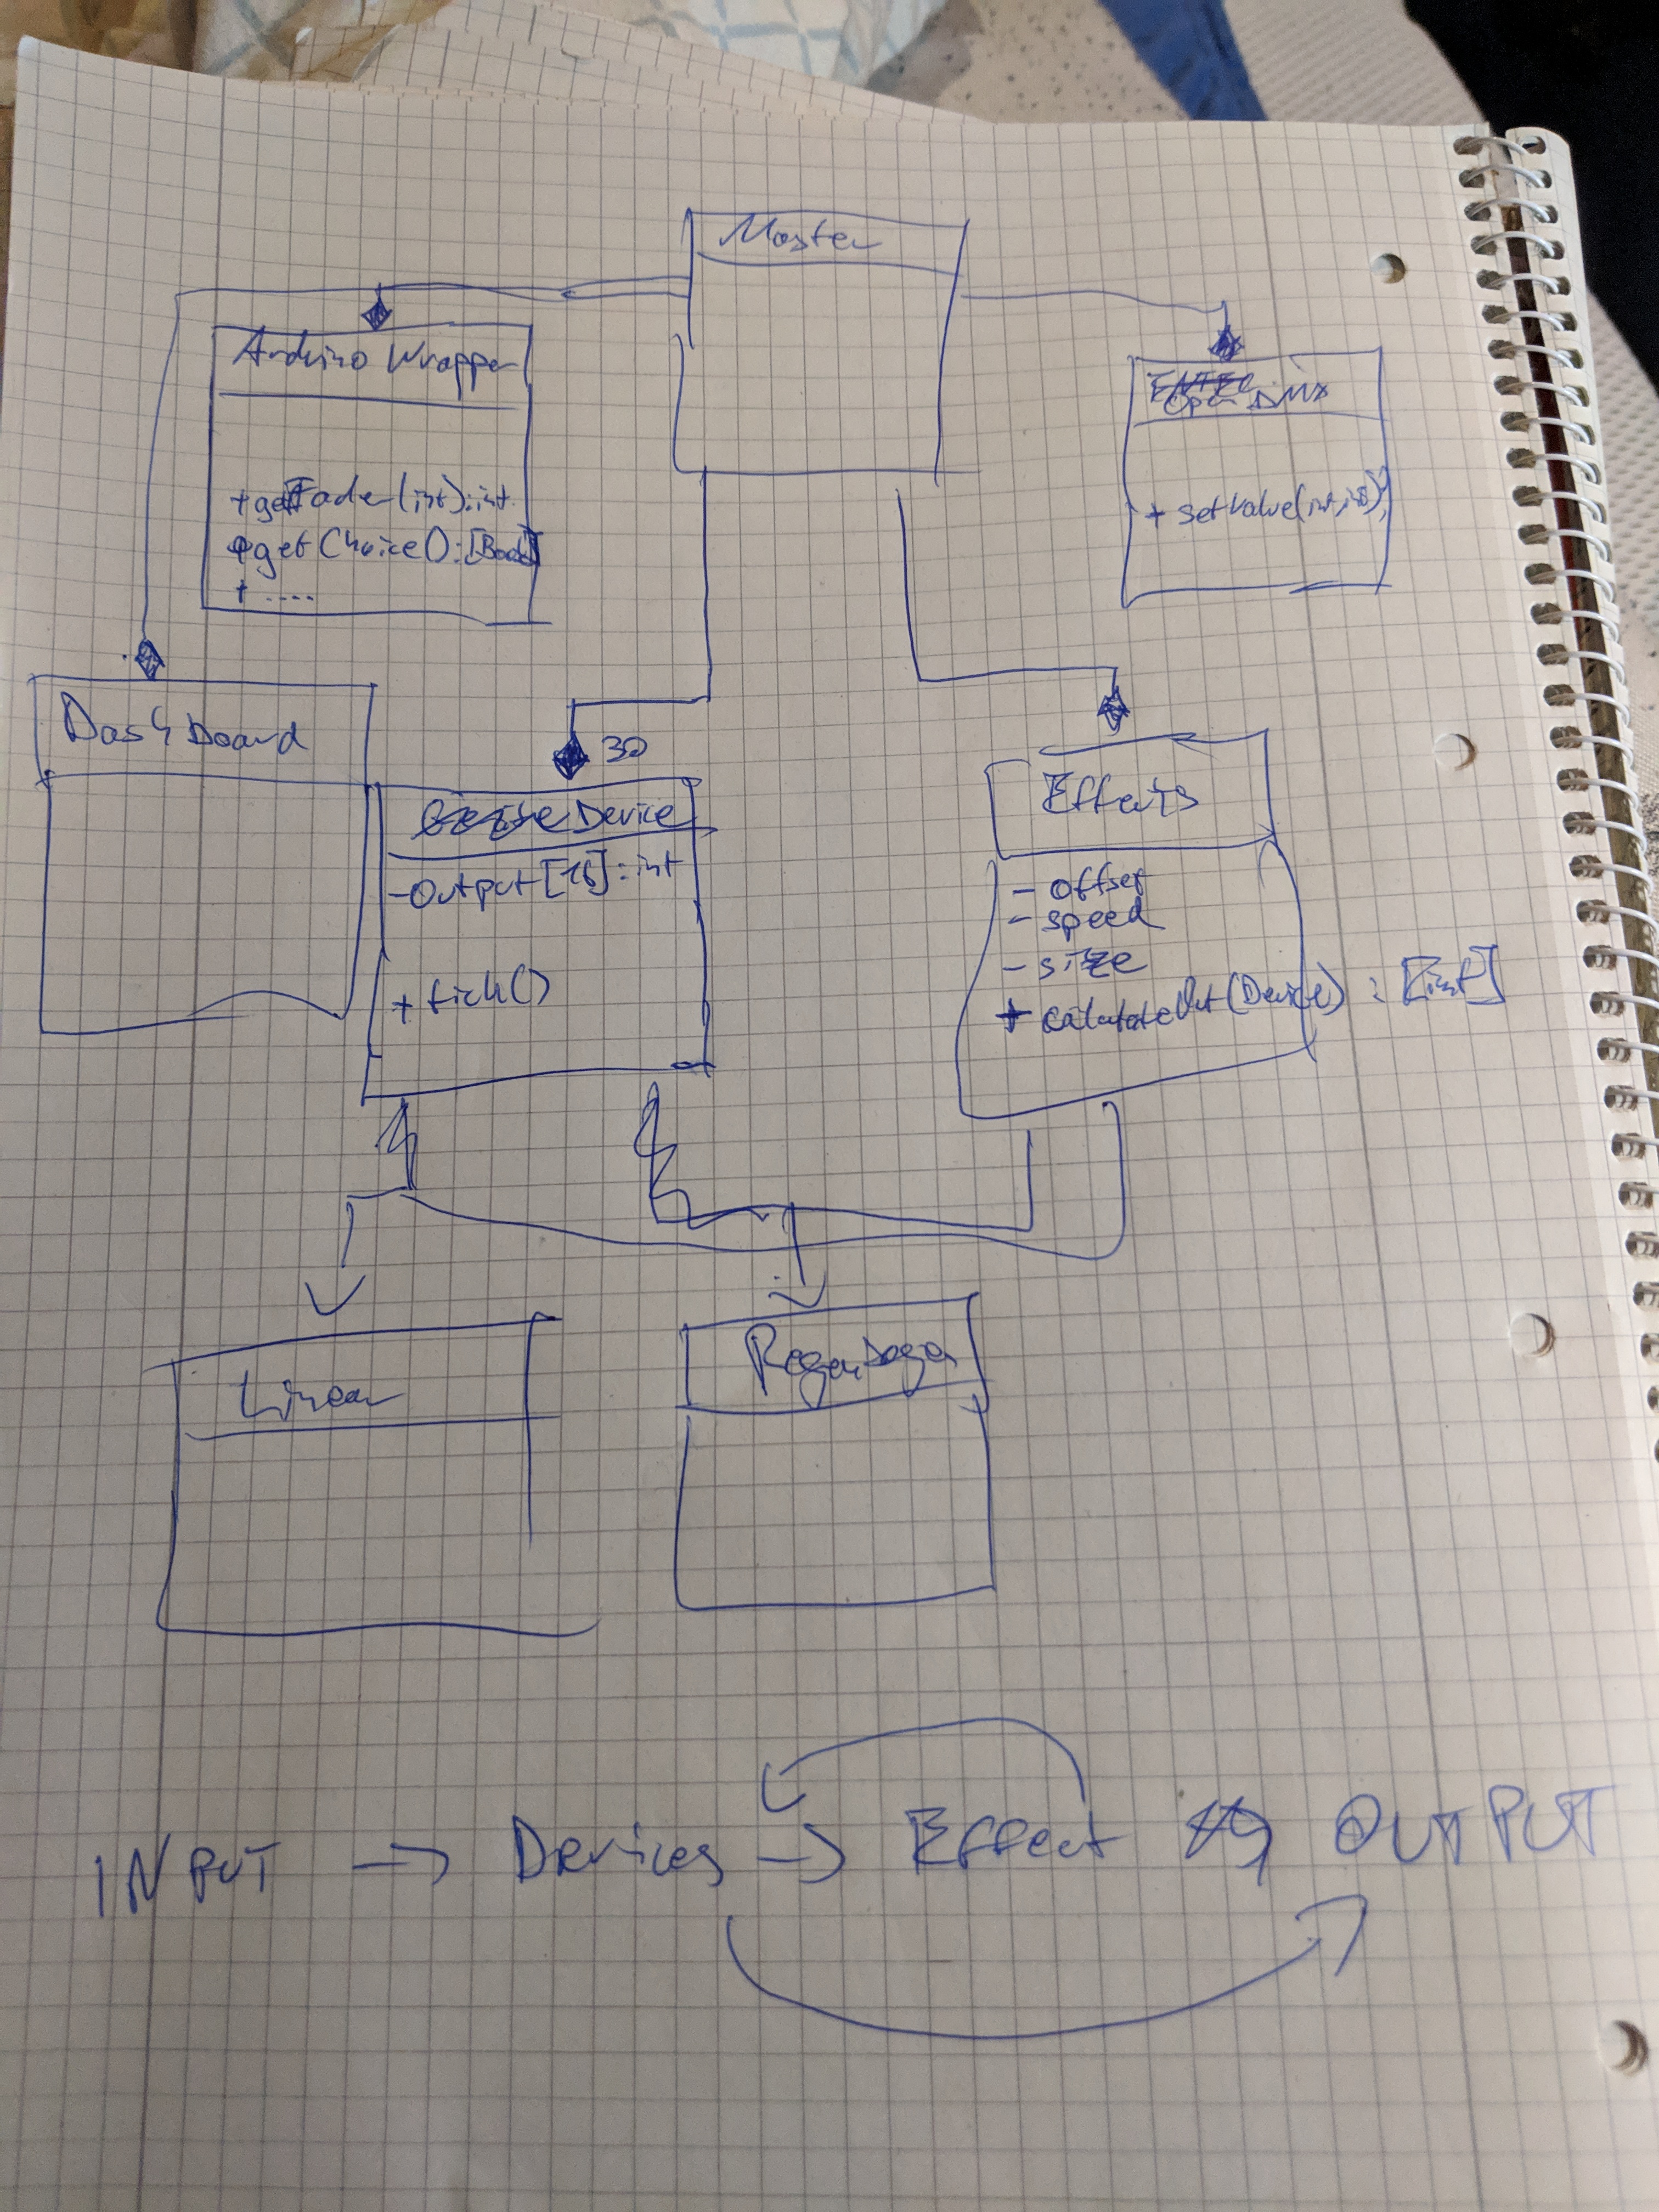 Master
Arduino Wrapper
+getFader(int):int
+getChoice():[Bool]
+ ....
ENTEC
Open DMX
+ setValue(int,int);
Dashboard
30
Device
-Output[16]:int
+ tick()
Effects
- offset
- speed
- size
+ calculateOut(Device) : [int]
Linear
Regenbogen
INPUT → Devices → Effect OUTPUT